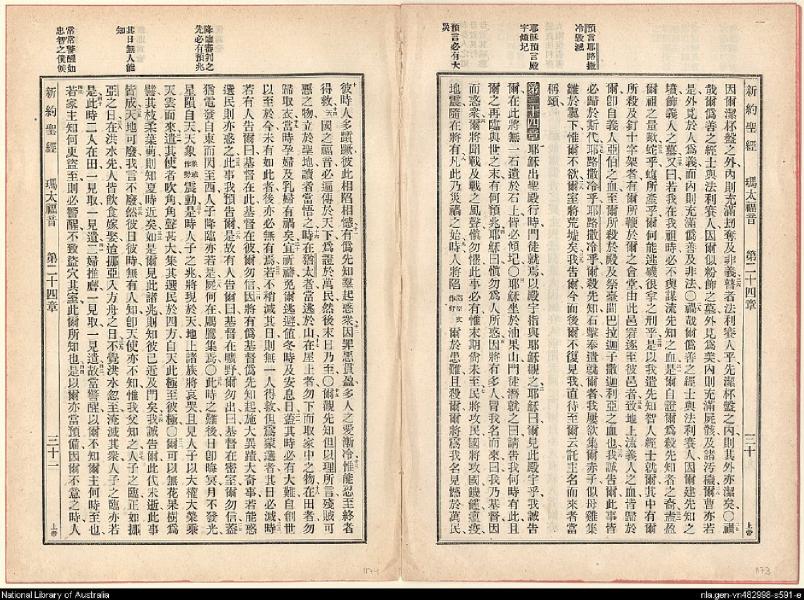 新約聖經 瑪太福音 第二十四章 三十
因爾潔杯盤之外內則充滿刧奪及非義瞽者法利賽人乎先潔杯盤之內則其外亦潔矣〇禍
哉爾僞善之經士與法利賽人因爾似粉飾之墓外見爲美內則充滿屍骸及諸汚穢爾曹亦若
是外見於人爲義而內則充滿僞善及非法〇禍哉爾僞善之經士與法利賽人因爾建先知之
墳飾義人之墓又曰若我在我祖時必不與謀流先知之血是爾自證爾爲殺先知者之裔
爾祖之量歟蛇乎蝮所產乎爾何能逃磯很拿之刑乎是以我遣先知智人經士就爾其中有爾
所殺及釘十字架者有爾所鞭於爾之會堂由此邑窘逐至彼邑者致地上流義人之血皆歸於
爾卽自義人亞伯之血至爾所殺於殿及祭臺間巴拉迦子撒迦利亞之血也我誠告爾此事皆
必歸於斯代耶路撒冷乎耶路撒冷乎爾殺先知石擊奉遣就爾者我屢欲集爾赤子似母雞集
雛於翼下惟爾不欲爾室將荒墟矣我告爾今而後爾不復見我直待至爾云託主名而來者當
稱頌
第二十四章 耶穌出聖殿行時門徒就焉以殿宇指與耶穌觀之耶穌曰爾見此殿宇乎我誠告
爾在此將無一石遺於石上皆必傾圮〇耶穌坐於油果山門徒潛就之曰請告我何時有此且
爾之再臨與世之末有何預兆耶穌曰愼勿爲人所惑因將有多人冒我名而來曰我乃基督因
而惑衆爾將聞戰及戰之風聲愼勿懼此事必有惟末期尚未至民將攻民國將攻國饑饉瘟疫
地震隨在將有凡此乃災禍之始時人將陷爾於患難且殺爾爾將爲我名見憾於萬民
預言耶路撒
冷毀滅
耶穌預言殿
宇傾圮
預言必有大
災
新約聖經 瑪太福音 第二十四章 三十一
彼時人多躓蹶彼此相陷相憾有僞先知羣起惑衆因罪惡貫盈多人之愛漸冷惟能忍至終者
得救天國之福音必遍傳於天下爲證於萬民然後末日乃至〇爾觀先知但以理所言殘賊可
惡之物立於聖地讀者當悟之時在猶太者當逃於山在屋上者勿下而取家中之物在田者勿
歸取衣當時孕婦及乳婦有禍矣宜祈禱免爾逃避値冬時及安息日蓋其時必有大難自創世
以至於今未有如此者後亦必無有焉若不稍減其日則無一人得救但爲蒙選者其日必減時
若有人告爾曰基督在此基督在彼爾勿信因將有僞基督僞先知起施大異蹟大奇事若能惑
選民則亦惑之此事我預告爾是故有人告爾曰基督在曠野爾勿出曰基督在密室爾勿信蓋
猶電發自東而閃至西人子降臨亦若是屍何在鵰鷹集焉〇此時之難後日卽晦冥月不發光
星隕自天天象震動是時人子之兆將現於天地上諸族將哀哭且見人子以大權大榮乘
天雲而來遣其使者吹角角聲甚大集其選民於四方自天此極至彼極〇爾可以無花果樹爲
譬其枝柔葉萌則知夏時近矣如是爾見此諸兆則知彼已近及門矣我誠告爾此代未逝此事
皆成天地可廢我言不廢然彼日彼時無有人知卽天使亦不知惟我父知之人子之臨正如挪
亞之日在洪水先人皆飲食嫁娶迨挪亞入方舟之日不覺洪水忽至淹滅其衆人子之臨亦若
是此時二人在田一見取一見遺二婦推磨一見取一見遺故當警醒以爾不知爾主何時至也
若家主知何更盜至則必警醒不致盜穴其室此爾所知也是以爾亦當預備因爾不意之時人
降臨審判之
先必有預兆
其日無人能
知
常常警醒如
忠智之僕候
National Library of Australia
nla.gen-vn482998-s591-e